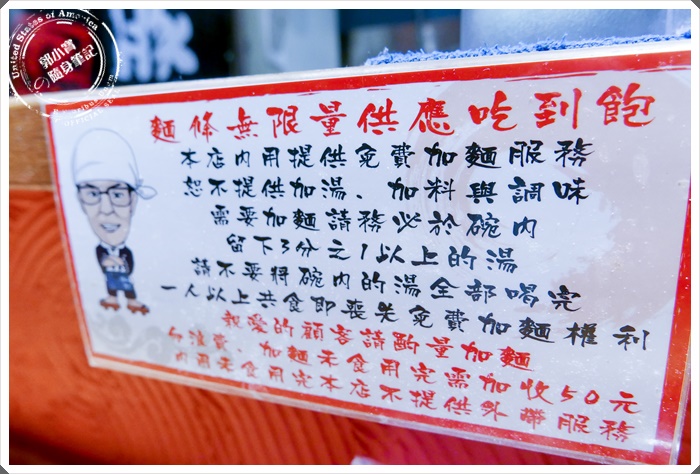 United States of America
郭小寶
の隨身筆記
麵條無限量供應吃到飽
本店內用提供免費加麵服務
恕不提供加湯、加料與調味
需要加麵請務必於碗內
留下3分之1以上的湯
請不要將碗內的湯全部喝完
一人以上共食即喪失免費加麵權利
親愛的顧客請酌量加麵
勿浪費、加麵未食用完需加收50元
內用未食用完本店不提供外帶服務